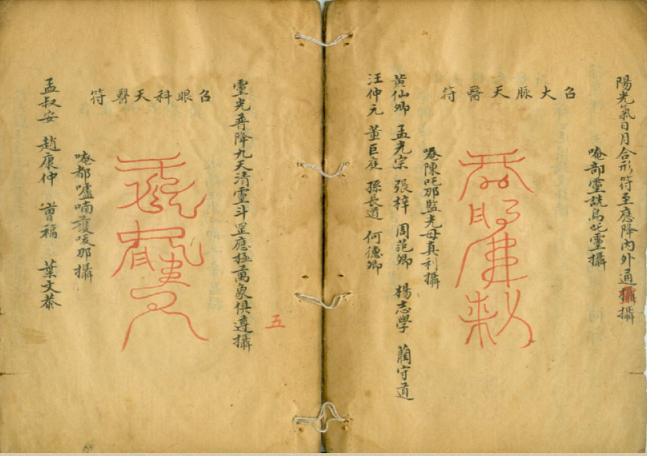 陽光氣日月合形符至應降內外通攝攝
唵部靈誂烏吒靈攝
召大脉天醫符
唵陳吒那監光母真利攝
黃仙卿 孟光宗 張梓 周范卿 楊志學 藺守道
汪仲元 董巨庭 孫長道 何德卿
五
靈光普降九天清靈斗罡應極萬象俱達攝
召眼科天醫符
唵都嚧喃廢唛那攝
孟叔安 趙康仲 曾福 葉文恭